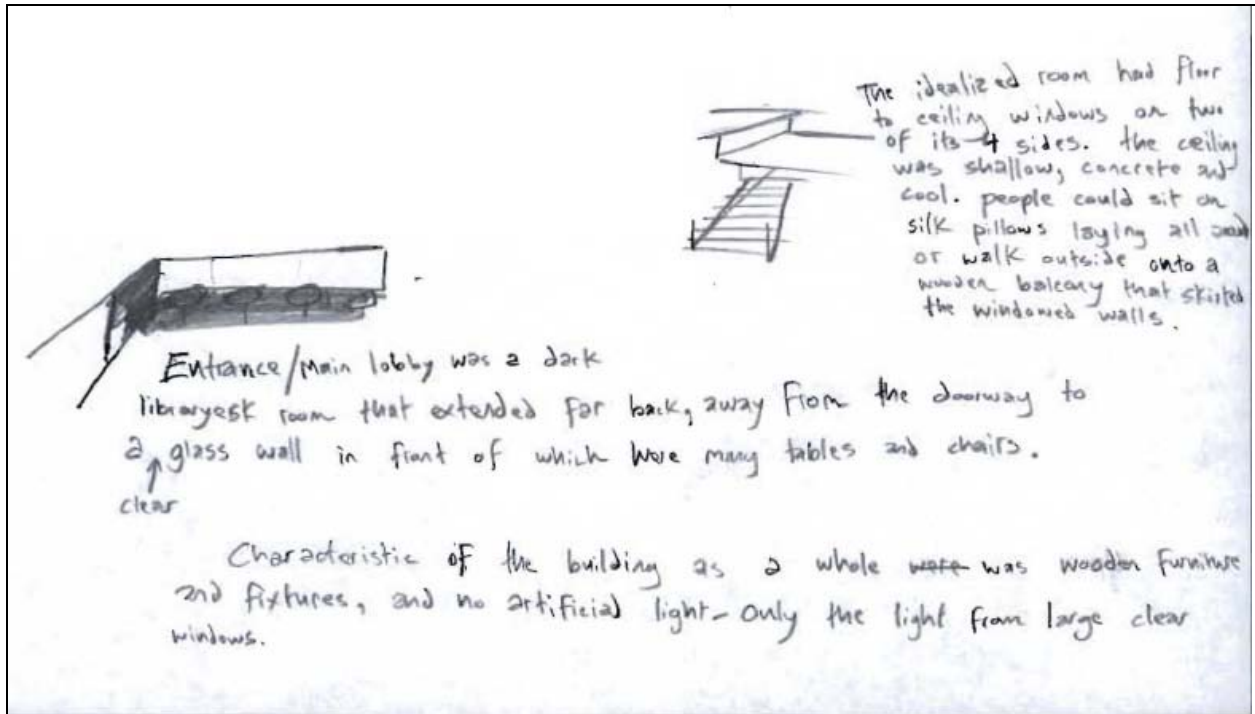 The idealized room had floor
to ceiling windows on two
of its 4 sides. the ceiling
was shallow, concrete and
cool. people could sit on
silk pillows laying all
or walk outside onto a
wooden balcony that skirted
the windowed walls.
Entrance/Main lobby was a dark
libraryesk room that extended far back, away from the doorway to
a glass wall in front of which were many tables and chairs.
clear
Characteristic of the building as a whole were was wooden furniture
and fixtures, and no artificial light- only the light from large clear
windows.